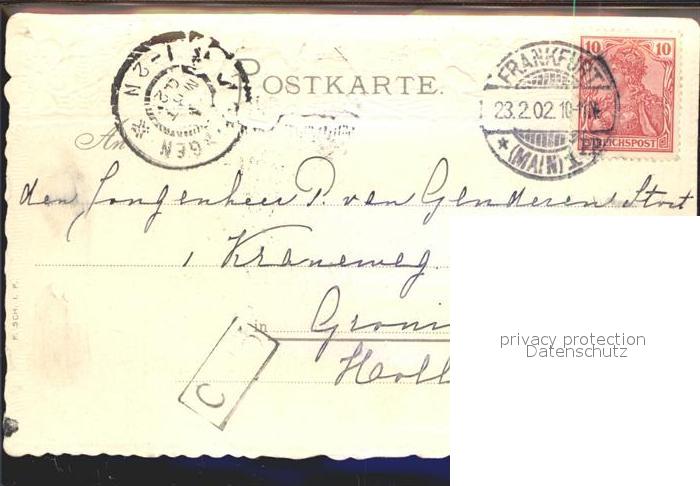 POSTKARTE.
FRANKFURT
23.2.02.10-11
(MAIN)
10 10
REICHSPOST
1-2 N
GEN
An
den Jongenheer P. van Genderen Stort
Kraneweg
in Groni
Holl
C
F. SCH. I. F.
privacy protection
Datenschutz